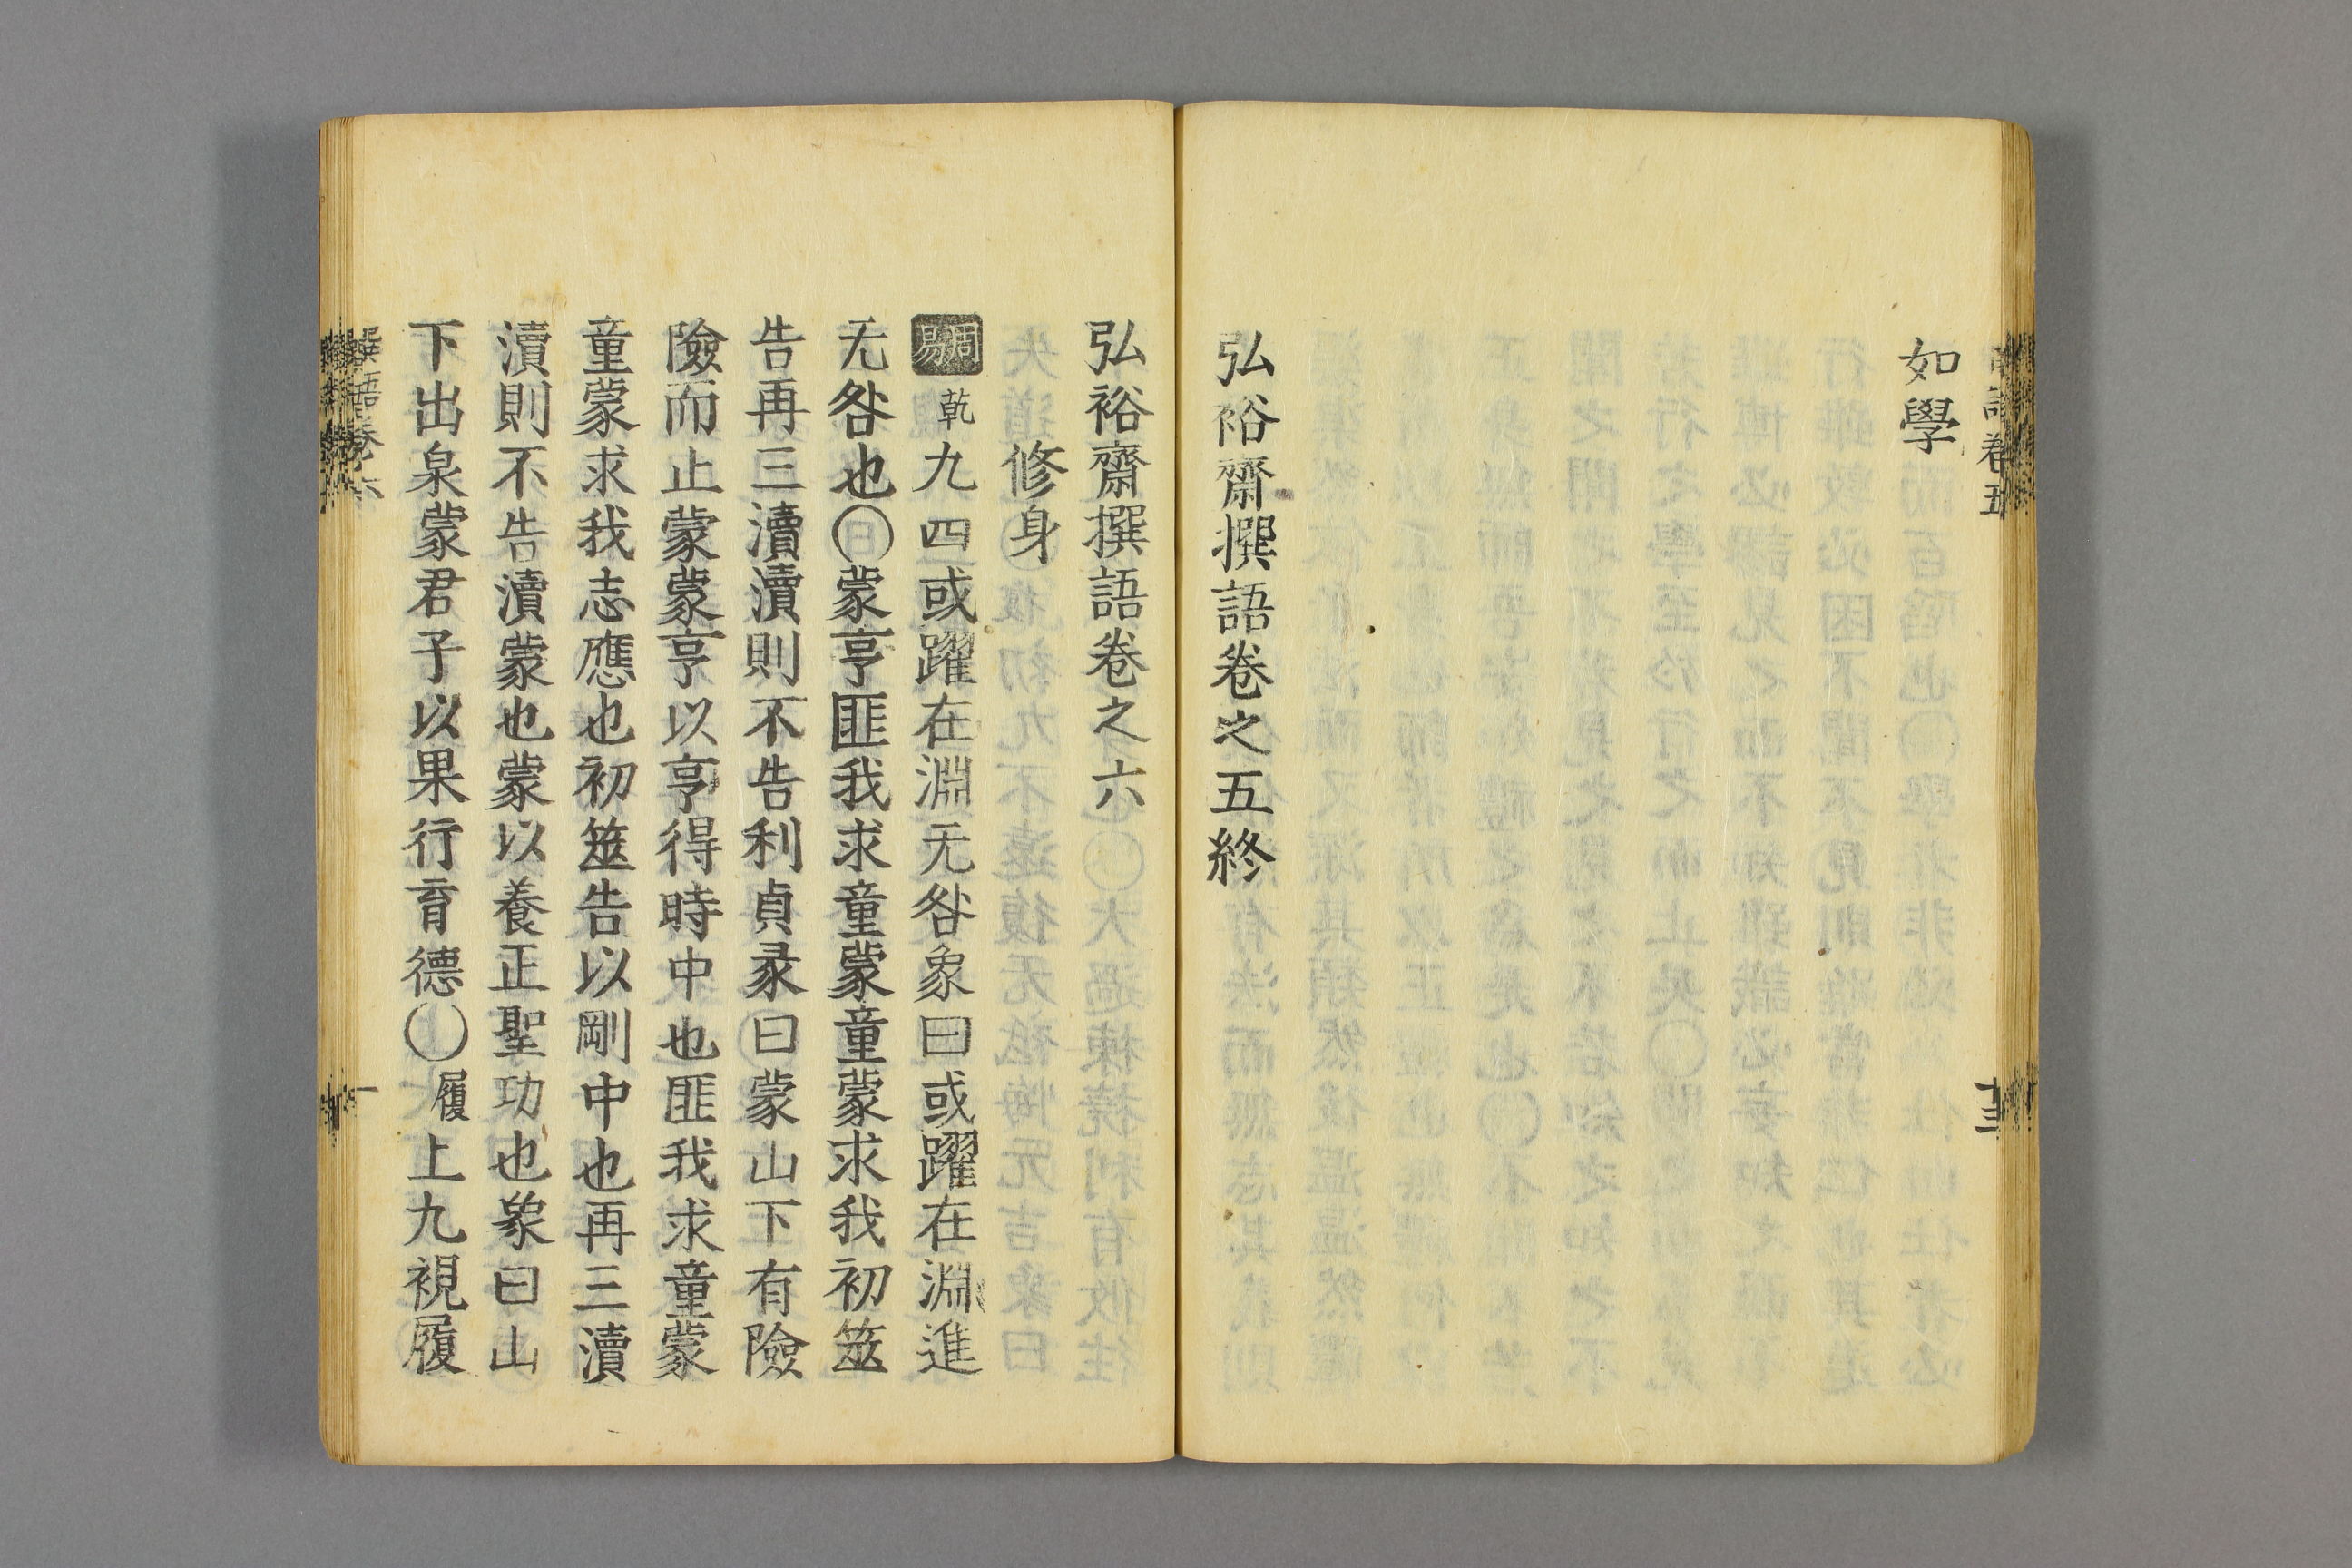 如學
弘裕齋撰語卷之五終
弘裕齋撰語卷之六
修身
周易 乾九四或躍在淵无咎象曰或躍在淵進
无咎也○蒙亨匪我求童蒙童蒙求我初筮
告再三瀆瀆則不告利貞彖曰蒙山下有險
險而止蒙蒙亨以亨得時中也匪我求童蒙
童蒙求我志應也初筮告以剛中也再三瀆
瀆則不告瀆蒙也蒙以養正聖功也象曰山
下出泉蒙君子以果行育德○履上九視履
撰語卷六
一